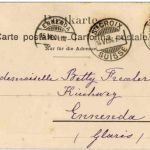 Postkarte.
Carte postale. Cartolina postale.
Nur für die Adresse.
ENNENDA
STE CROIX
SUISSE
Mademoiselle Betty
Kirchweg
Ennenda
(Glaris)